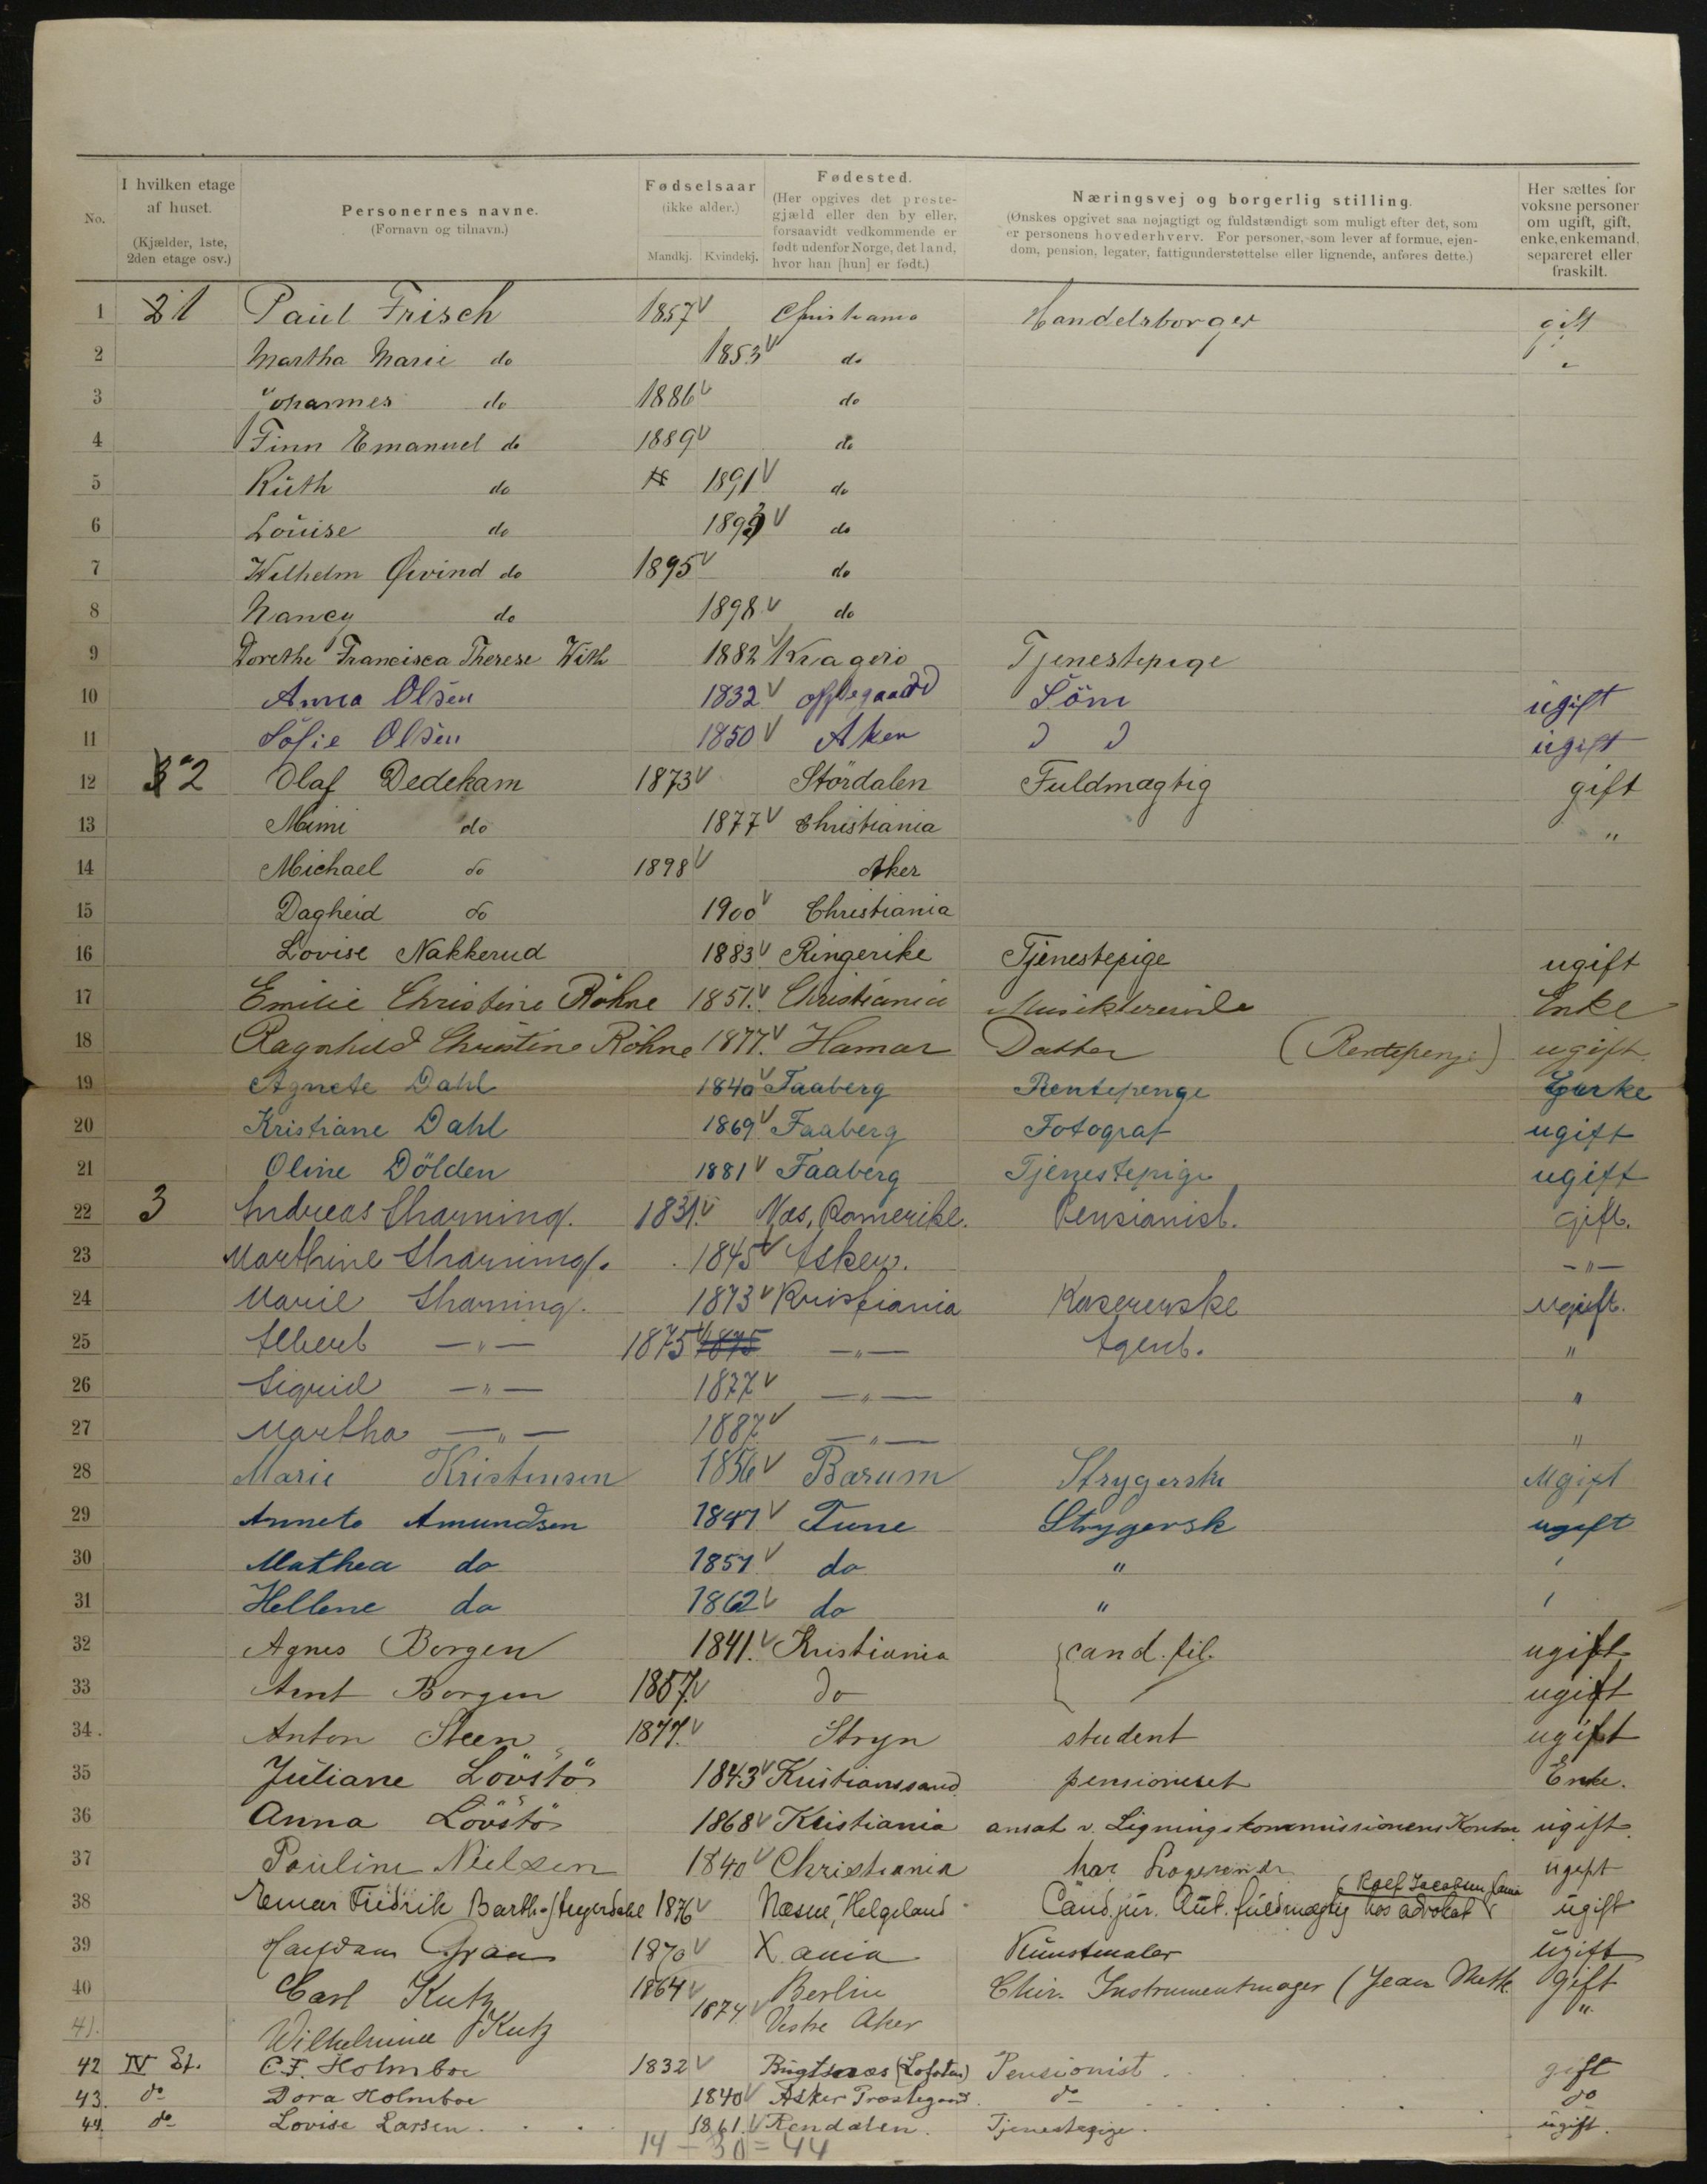 No.
I hvilken etage af huset.
(Kjælder, 1ste, 2den etage osv.)
Personernes navne.
(Fornavn og tilnavn.)
Fødselsaar
(ikke alder.)
Mandkj. Kvindekj.
Fødested.
(Her opgives det preste-
gjæld eller den by eller,
forsaavidt vedkommende er
født udenfor Norge, det land,
hvor han [hun] er født.)
Næringsvej og borgerlig stilling.
(Ønskes opgivet saa nøjagtigt og fuldstændigt som muligt efter det, som
er personens hovederhverv. For personer, som lever af formue, ejen-
dom, pension, legater, fattigunderstøttelse eller lignende, anføres dette.)
Her sættes for
voksne personer
om ugift, gift,
enke, enkemand,
separeret eller
fraskilt.
1 1 Paul Frisch 1857 Christiania Handelsborger gift
2 Martha Marie do 1853 do "
3 Johannes do 1886 do
4 Finn Emanuel do 1889 do
5 Ruth do 1891 do
6 Louise do 1893 do
7 Wilhelm Øivind do 1895 do
8 Nancy do 1898 do
9 Dorethe Francisca Therese With 1882 Kragerø Tjenestepige
10 Anna Olsen 1832 Oppegaard Söm ugift
11 Sofie Olsen 1850 Aker ugift
12 2 Olaf Dedekam 1873 Stördalen Fuldmægtig gift
13 Mimi do 1877 Christiania "
14 Michael do 1898 Aker
15 Dagheid do 1900 Christiania
16 Lovise Nakkerud 1883 Ringerike Tjenestepige ugift
17 Emilie Christine Röhne 1851. Christiania Musiklærerinde Enke
18 Ragnhild Christine Röhne 1877. Hamar Datter (Rentepenge) ugift.
19 Agnete Dahl 1840 Faaberg Rentepenge Enke
20 Kristiane Dahl 1869 Faaberg Fotograf ugift
21 Oline Dölden 1881 Faaberg Tjenestepige ugift
22 3 Andreas Skarning. 1831. Næs, Romerike. Pensionist. gift.
23 Marthine Skarning. 1845 Asker. -"-
24 Marie Skarning. 1873 Kristiania Kasererske ugift.
25 Albert -"- 1875 1875 -"- Agent. "
26 Sigrid -"- 1877 -"- "
27 Martha -"- 1887 -"- "
28 Marie Kristensen 1856 Bærum Strygerske Ugift
29 Annete Amundsen 1847 Tune Strygersk ugift
30 Mathea do 1857 do "
31 Hellene do 1862 do "
32 Agnes Borgen 1841. Kristiania ugift
33 Arnt Borgen 1857. do cand. fil. ugift
34. Anton Steen 1877. Stryn student ugift
35 Juliane Lövstö 1843 Kristianssand pensioneret Enke.
36 Anna Lövstö 1868 Kristiania ansat v. Ligningskommissionens Kontor ugift.
37 Pauline Nielsen 1840 Christiania har Logerende ugift
38 Fredrik Barth 1876 Næsne, Helgeland Cand. jur. Aut. fuldmægtig hos advokat (Rolf Jacobsen ugift
39 Halfdan Gran 1870 Xania Kunstmaler ugift
40 Carl Kutz 1864 Berlin Chir. Instrumentmager (Jean gift
41. Wilhelmine Kutz 1874 Vestre Aker "
42 IV Et. C.F. Holmboe 1832 (Lofoten) Pensionist gift
43. do Dora Holmboe 1840 Asker Præstegaard do do
44. do Lovise Larsen 1861. Rendalen. Tjenestepige. ugift.
14 + 30 = 44